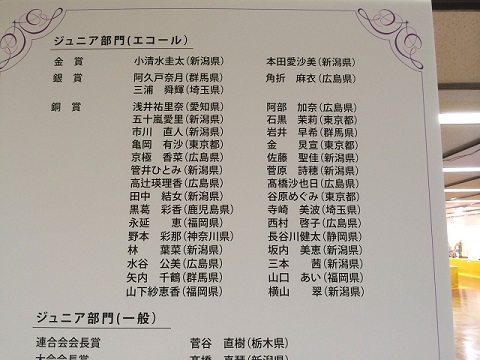 ジュニア部門(エコール)
金　賞　小清水圭太(新潟県)　本田愛沙美(新潟県)
銀　賞　阿久戸奈月(群馬県)　角折　麻衣(広島県)
三浦　舜輝(埼玉県)
銅　賞　浅井祐里奈(愛知県)　阿部　加奈(広島県)
五十嵐愛里(新潟県)　石黒　茉莉(東京都)
市川　直人(新潟県)　岩井　早希(群馬県)
亀岡　有沙(東京都)　金　炅宣(東京都)
京極　香菜(広島県)　佐藤　聖佳(新潟県)
管井ひとみ(新潟県)　菅原　詩穂(新潟県)
高辻瑛理香(広島県)　髙橋沙也日(広島県)
田中　結女(新潟県)　谷原めぐみ(東京都)
黒葛　彩香(鹿児島県)　寺崎　美波(埼玉県)
永延　恵(福岡県)　西村　啓子(広島県)
野本　彩那(神奈川県)　長谷川健太(静岡県)
林　葉菜(新潟県)　坂内　美恵(新潟県)
水谷　公美(広島県)　三本　茜(新潟県)
矢内　千鶴(群馬県)　山口　あい(新潟県)
山下紗恵香(福岡県)　横山　翠(新潟県)
ジュニア部門(一般)
連合会会長賞　菅谷　直樹(栃木県)